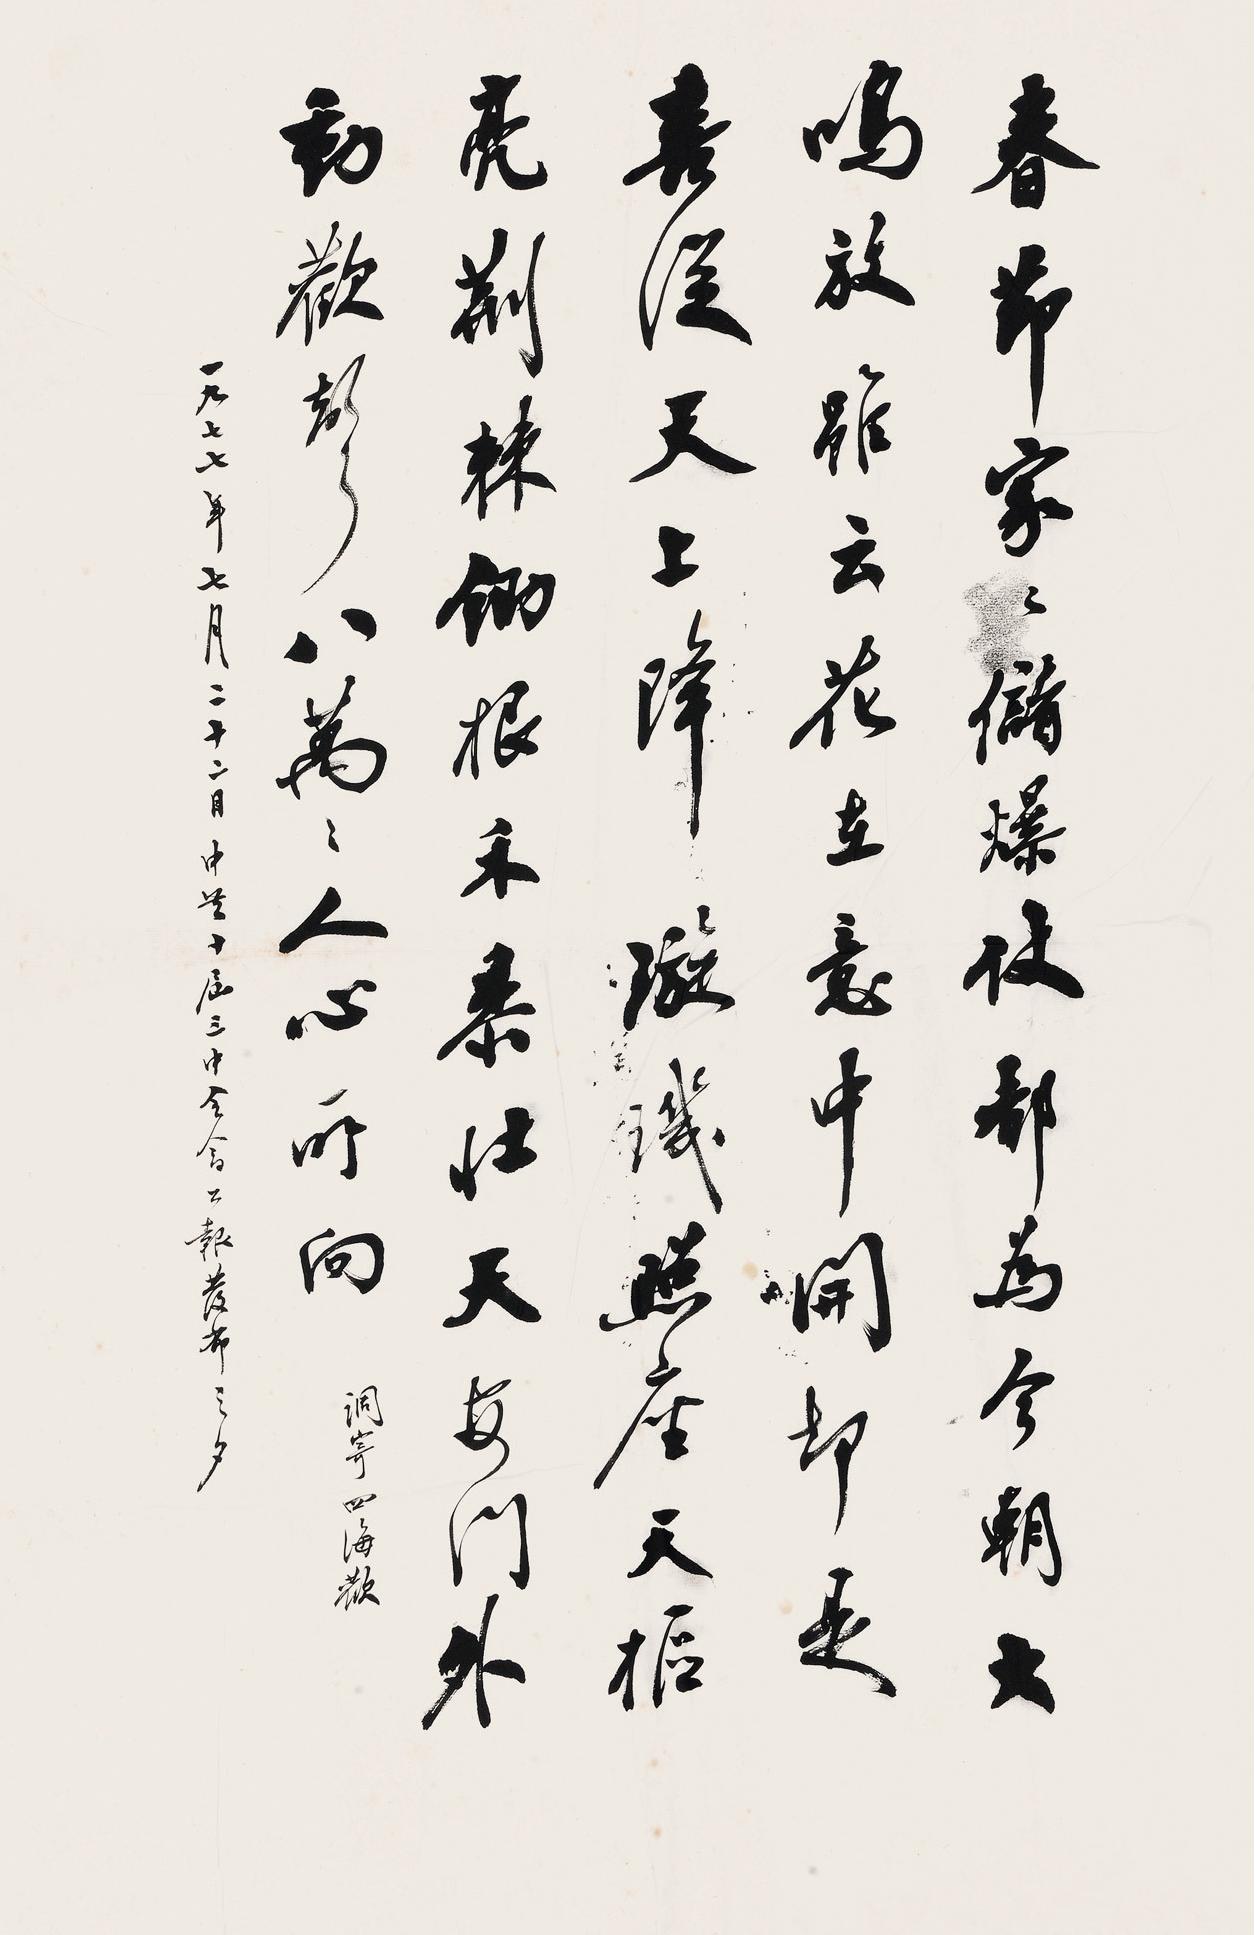 春節家々儲爆仗都為今朝大
鳴放雖云花在意中開却是
喜從天上降 璇璣照座天樞
亮荊棘鋤根禾黍壯天安門外
動歡聲八萬々人心所向
調寄四海歡
一九七七年七月二十二日中共十届三中全會公報發布之夕